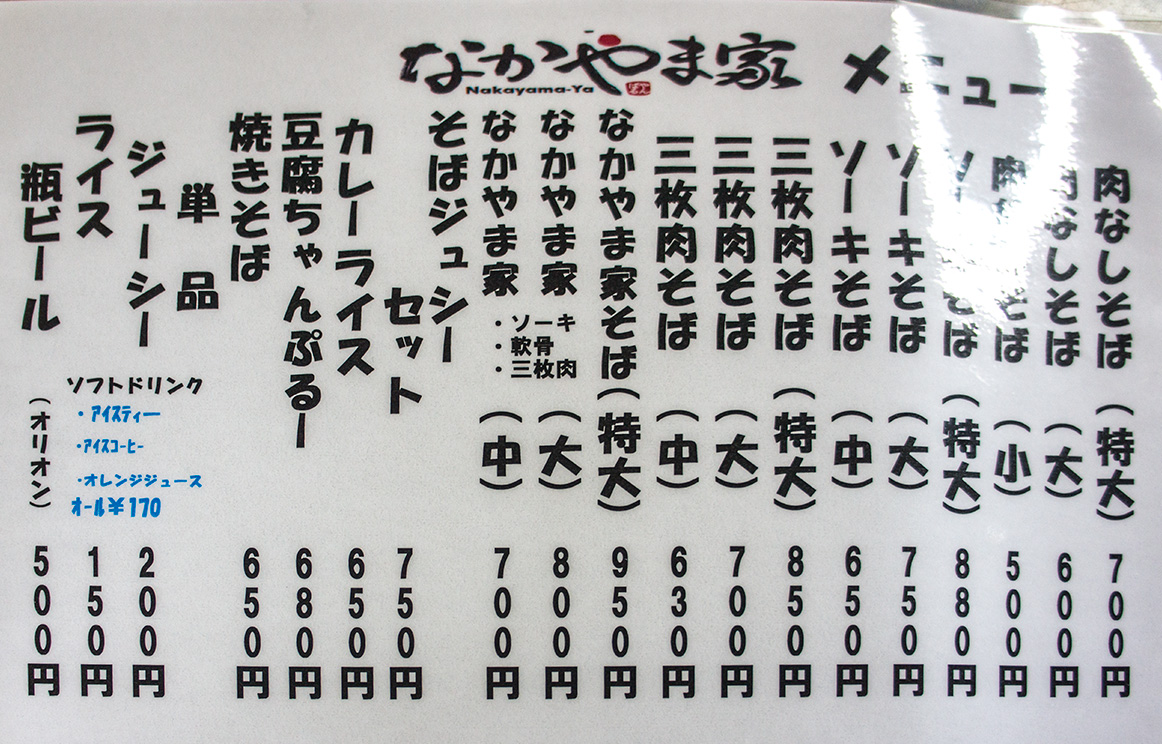 なかやま家 メニュー
Nakayama-Ya
肉なしそば（特大）700円
肉なしそば（大）600円
肉なしそば（小）500円
ソーキそば（特大）880円
ソーキそば（大）750円
ソーキそば（中）650円
三枚肉そば（特大）850円
三枚肉そば（大）700円
三枚肉そば（中）630円
なかやま家そば（特大）950円
なかやま家（大）800円
なかやま家（中）700円
・ソーキ
・軟骨
・三枚肉
そばジュシー
セット 750円
カレーライス 650円
豆腐ちゃんぷるー 680円
焼きそば 650円
単品
ジューシー 200円
ライス 150円
瓶ビール（オリオン）500円
ソフトドリンク
・アイスティー
・アイスコーヒー
・オレンジジュース
オール￥170